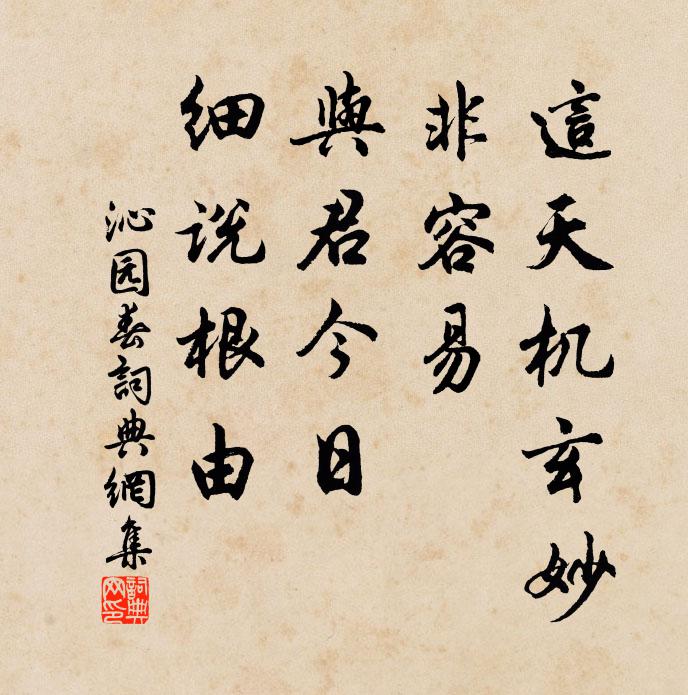 這天机玄妙
非容易
與君今日
细说根由
沁园春詞典網集
詞典
网印